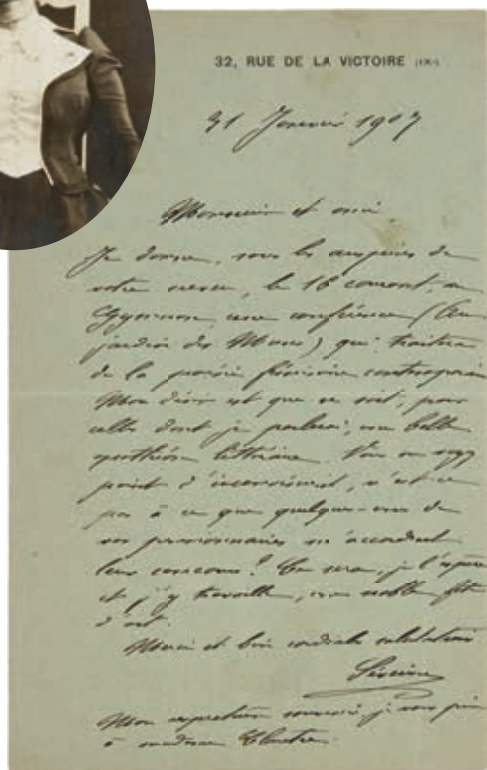 32, RUE DE LA VICTOIRE (IXe)
31 Janvier 1907
Monsieur et ami.
Je donne, sous les auspices de
votre neveu, le 16 courant, au
Gymnase, une conférence (Au
jardin des Muses) qui traitera
de la poésie féminine contemporaine
Mon désir est que ce soit, pour
celles dont je parlerai, une belle
apothéose littéraire. Vous ne voyez
point d'inconvénient, n'est-ce
pas à ce que quelques-unes de
vos pensionnaires m'accordent
leur concours? Ce sera, je l'espère
et j'y travaille, une noble fête
d'art.
Merci et bien cordiale salutation
Séverine
Mon respectueux souvenir, je vous prie
à madame